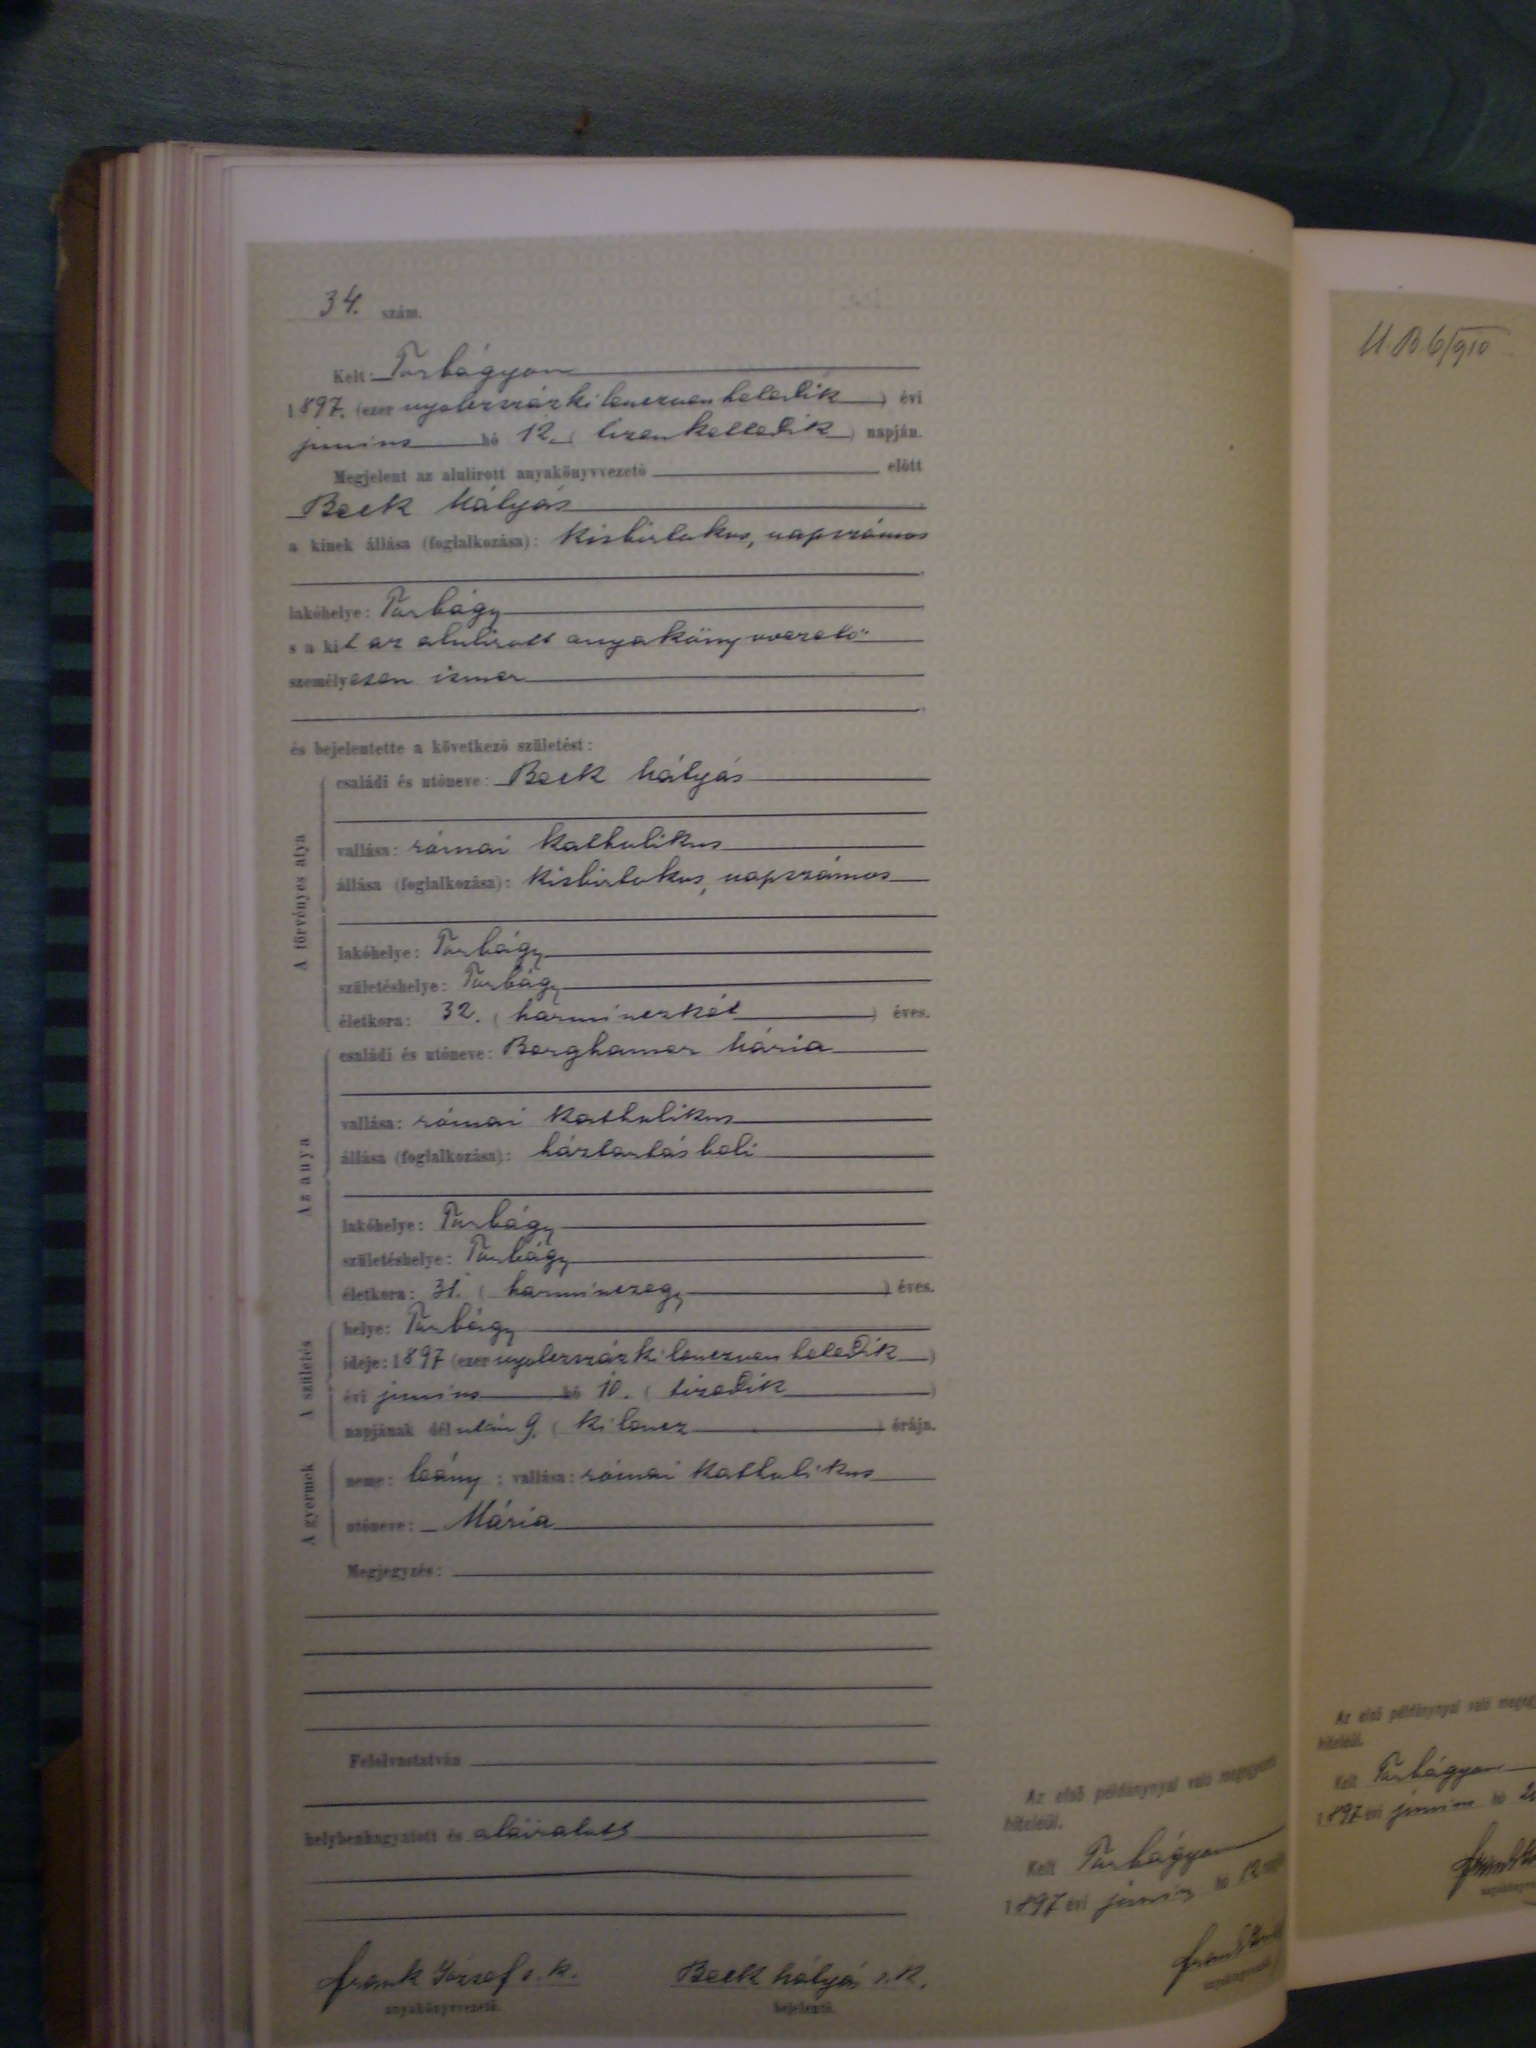 34. szám.
Kelt: Torbágyon
1897. (ezer nyolczszázkilenczvenhetedik) évi
junius hó 12. (tizenkettedik) napján.
Megjelent az alulirott anyakönyvvezető előtt
Beck Mátyás
a kinek állása (foglalkozása): kisbirtokos, napszámos
lakóhelye: Torbágy
s a kit az alulirott anyakönyvvezető
személyesen ismer
és bejelentette a következő születést:
A törvényes atya
családi és utóneve: Beck Mátyás
vallása: római katholikus
állása (foglalkozása): kisbirtokos, napszámos
lakóhelye: Torbágy
születéshelye: Torbágy
életkora: 32. (harminczkét) éves.
Az anya
családi és utóneve: Berghamer Mária
vallása: római katholikus
állása (foglalkozása): háztartásbeli
lakóhelye: Torbágy
születéshelye: Torbágy
életkora: 31. (harminczegy) éves.
A születés
helye: Torbágy
ideje: 1897 (ezer nyolczszázkilenczvenhetedik)
évi junius hó 10. (tizedik)
napjának délután 9. (kilencz) órája.
A gyermek
neme: leány; vallása: római katholikus
utóneve: Mária
Megjegyzés:
Felolvastatván
helybenhagyatott és aláiratott
Frank József s. k.
anyakönyvvezető.
Beck Mátyás s. k.
bejelentő.
Az első példánynyal való megegyezés
hiteléül.
Kelt Torbágyon
1897 évi junius hó 12
Frank
anyakönyvvezető.
Az első példánynyal való
hiteléül.
Kelt Torbágyon
1897 évi junius hó